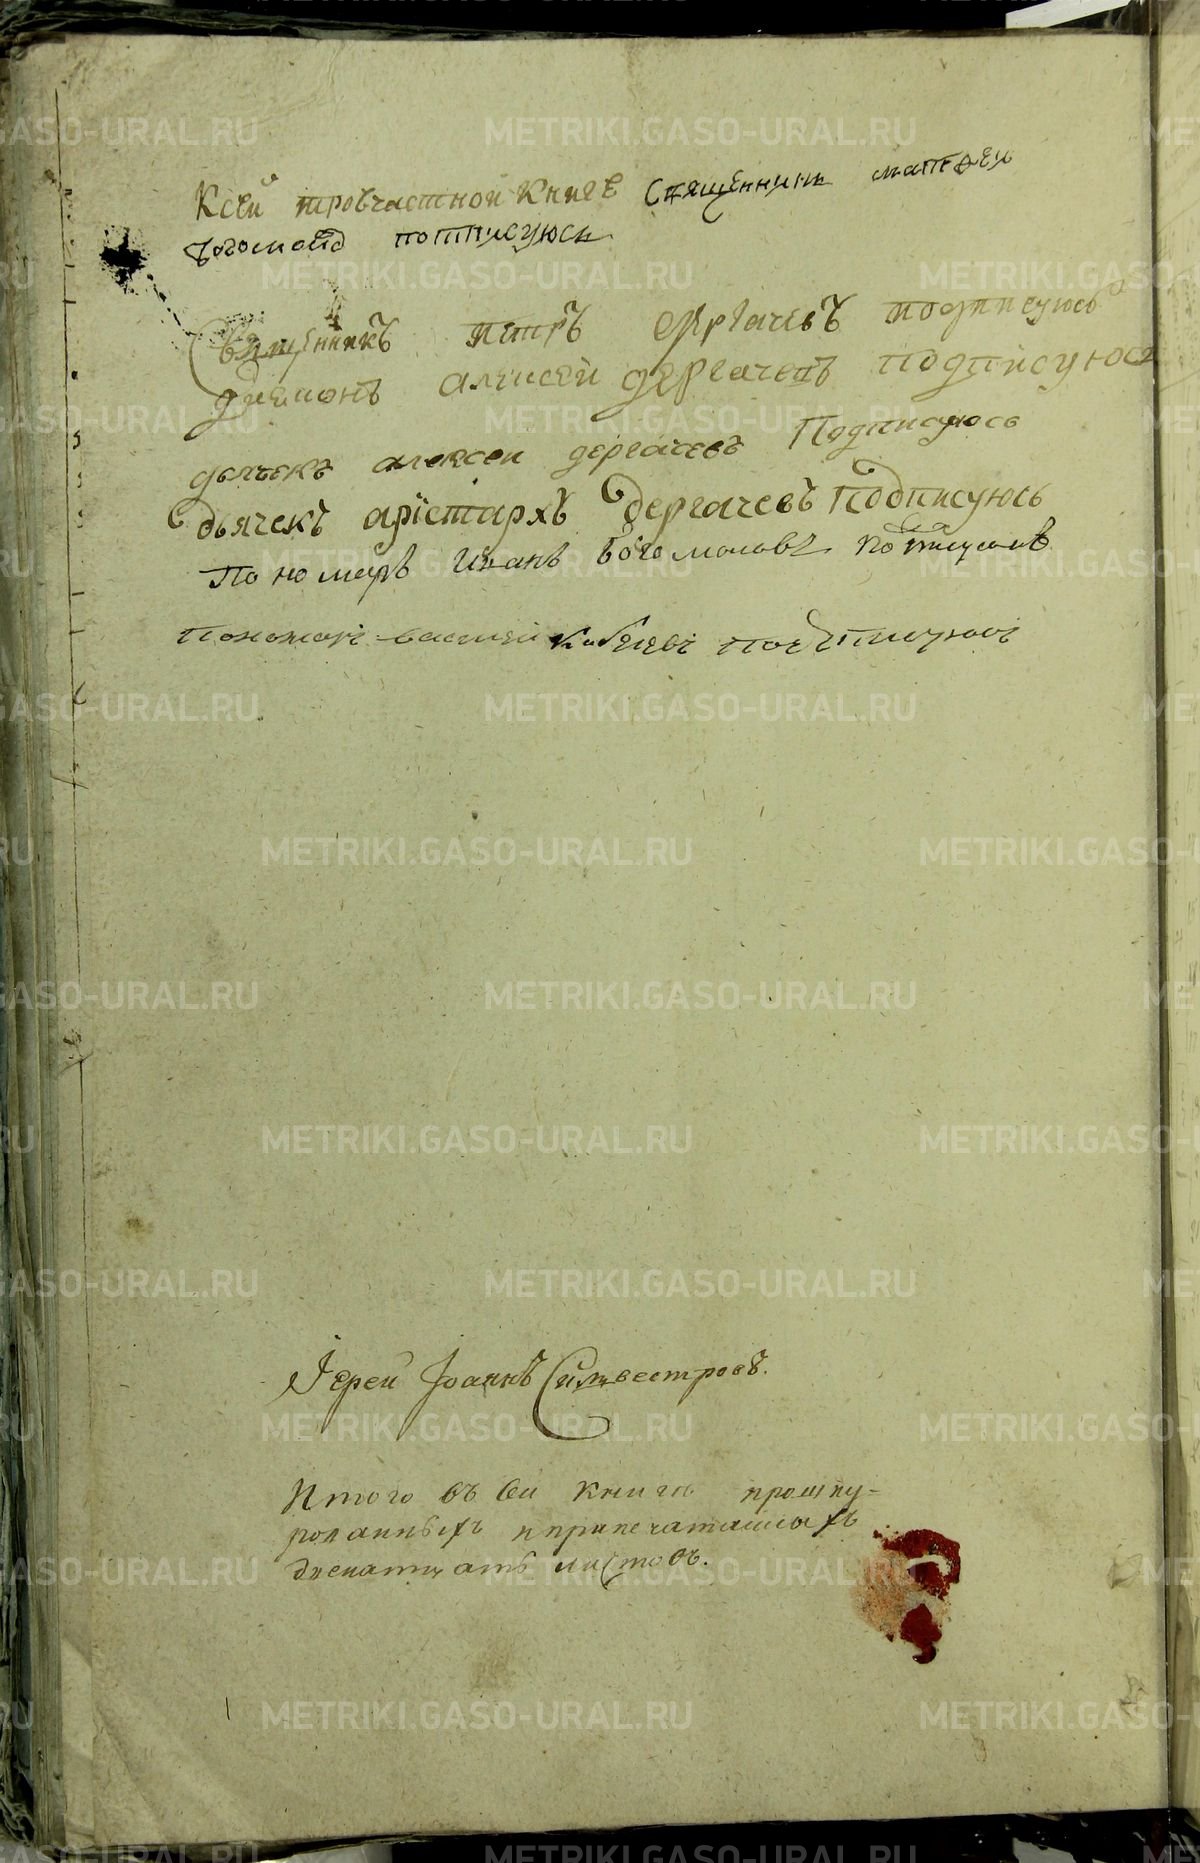 Ксей тровчастной Книге Священникъ матвеи
Богомолов потписуюсь
Священникъ петръ дергачевъ подписуюсь
диеконъ алексей дергачевъ подписуюсь
дьячекъ алексеи дергачевъ Подписуюсь
дьячекъ арістархъ дергачевъ Подписуюсь
Пономарь Иванъ Богомоловъ
пономарь василей подписуюсь
Іерей Іоаннъ Силвестровъ.
Итого въ сеи книге прошну-
рованныхъ и припечатанныхъ
двенатцать листовъ.
METRIKI.GASO-URAL.RU